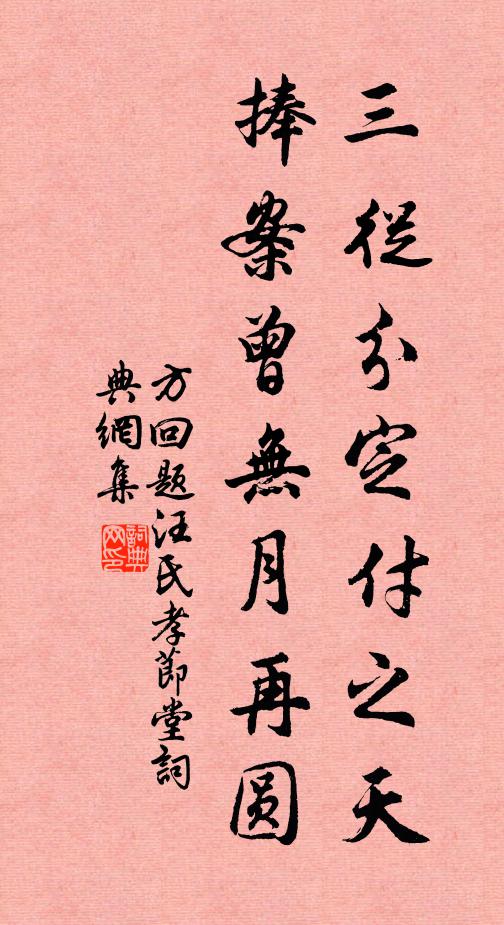 三從分定付之天
捧案曾無月再圆
方回题汪氏孝節堂詞
典網集
詞典
网印